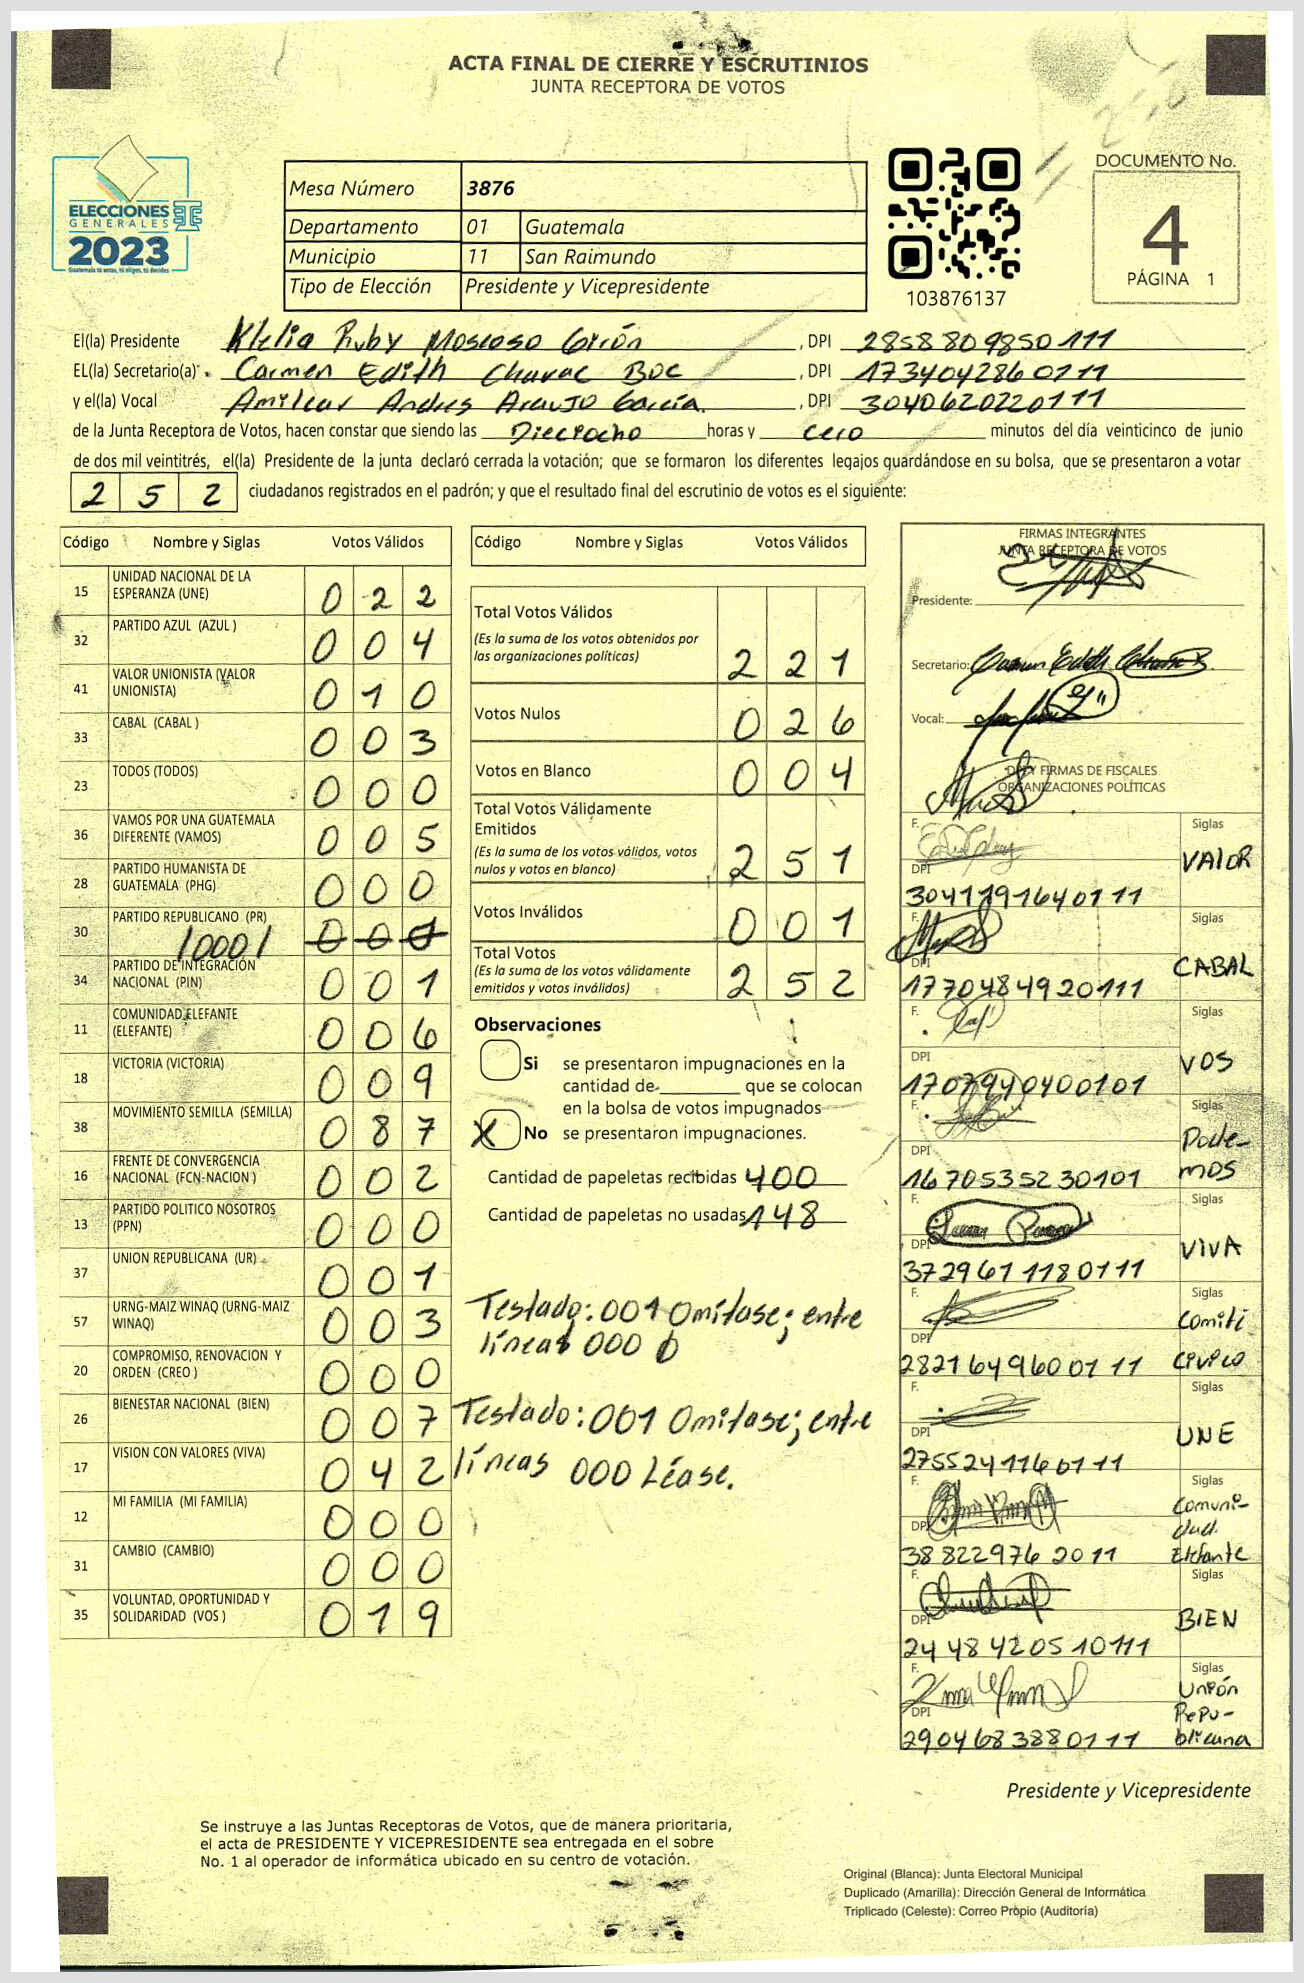 ACTA FINAL DE CIERRE Y ESCRUTINIOS
JUNTA RECEPTORA DE VOTOS
ELECCIONES
GENERALES
2023
Mesa Número 3876
Departamento 01 Guatemala
Municipio 11 San Raimundo
Tipo de Elección Presidente y Vicepresidente
103876137
DOCUMENTO No.
4
PÁGINA 1
El(la) Presidente Klelia Ruby Moscoso Girón, DPI 2858809850111
EL(la) Secretario(a) Carmen Edith Chavac Boc, DPI 1734042860111
y el(la) Vocal Amilcar Andres Araujo García., DPI 3040620220111
de la Junta Receptora de Votos, hacen constar que siendo las Dieciocho horas y cero minutos del día veinticinco de junio
de dos mil veintitrés, el(la) Presidente de la junta declaró cerrada la votación; que se formaron los diferentes legajos guardándose en su bolsa, que se presentaron a votar
252 ciudadanos registrados en el padrón; y que el resultado final del escrutinio de votos es el siguiente:
Código Nombre y Siglas Votos Válidos
15 UNIDAD NACIONAL DE LA ESPERANZA (UNE) 022
32 PARTIDO AZUL (AZUL ) 004
41 VALOR UNIONISTA (VALOR UNIONISTA) 010
33 CABAL (CABAL ) 003
23 TODOS (TODOS) 000
36 VAMOS POR UNA GUATEMALA DIFERENTE (VAMOS) 005
28 PARTIDO HUMANISTA DE GUATEMALA (PHG) 000
30 PARTIDO REPUBLICANO (PR) /000/
34 PARTIDO DE INTEGRACIÓN NACIONAL (PIN) 001
11 COMUNIDAD ELEFANTE (ELEFANTE) 006
18 VICTORIA (VICTORIA) 009
38 MOVIMIENTO SEMILLA (SEMILLA) 087
16 FRENTE DE CONVERGENCIA NACIONAL (FCN-NACION ) 002
13 PARTIDO POLITICO NOSOTROS (PPN) 000
37 UNION REPUBLICANA (UR) 001
57 URNG-MAIZ WINAQ (URNG-MAIZ WINAQ) 003
20 COMPROMISO, RENOVACION Y ORDEN (CREO ) 000
26 BIENESTAR NACIONAL (BIEN) 007
17 VISION CON VALORES (VIVA) 042
12 MI FAMILIA (MI FAMILIA) 000
31 CAMBIO (CAMBIO) 000
35 VOLUNTAD, OPORTUNIDAD Y SOLIDARIDAD (VOS ) 019
Código Nombre y Siglas Votos Válidos
Total Votos Válidos
(Es la suma de los votos obtenidos por
las organizaciones políticas) 221
Votos Nulos 026
Votos en Blanco 004
Total Votos Válidamente
Emitidos
(Es la suma de los votos válidos, votos
nulos y votos en blanco) 251
Votos Inválidos 001
Total Votos
(Es la suma de los votos válidamente
emitidos y votos inválidos) 252
Observaciones
Si se presentaron impugnaciones en la
cantidad de que se colocan
en la bolsa de votos impugnados
X No se presentaron impugnaciones.
Cantidad de papeletas recibidas 400
Cantidad de papeletas no usadas 148
Testado: 001 Omitase; entre
líneas 000
Testado: 001 Omitase; entre
líneas 000 Léase.
FIRMAS INTEGRANTES
JUNTA RECEPTORA DE VOTOS
Presidente:
Secretario:
Vocal:
DPI Y FIRMAS DE FISCALES
ORGANIZACIONES POLÍTICAS
F. Siglas
DPI VALOR
3041191640111
F. Siglas
DPI CABAL
1770484920111
F. Siglas
DPI VOS
1707940400101
F. Siglas
DPI Pode-
mos
1670535230101
F. Siglas
DPI VIVA
3729611180111
F. Siglas
DPI Comiti
Civico
2821649600111
F. Siglas
DPI UNE
2755241160111
F. Siglas
DPI Comuni-
dad
Elefante
3882297620111
F. Siglas
DPI BIEN
2448420510111
F. Siglas
DPI Unión
Repu-
blicana
2904683880111
Presidente y Vicepresidente
Se instruye a las Juntas Receptoras de Votos, que de manera prioritaria,
el acta de PRESIDENTE Y VICEPRESIDENTE sea entregada en el sobre
No. 1 al operador de informática ubicado en su centro de votación.
Original (Blanca): Junta Electoral Municipal
Duplicado (Amarilla): Dirección General de Informática
Triplicado (Celeste): Correo Propio (Auditoría)